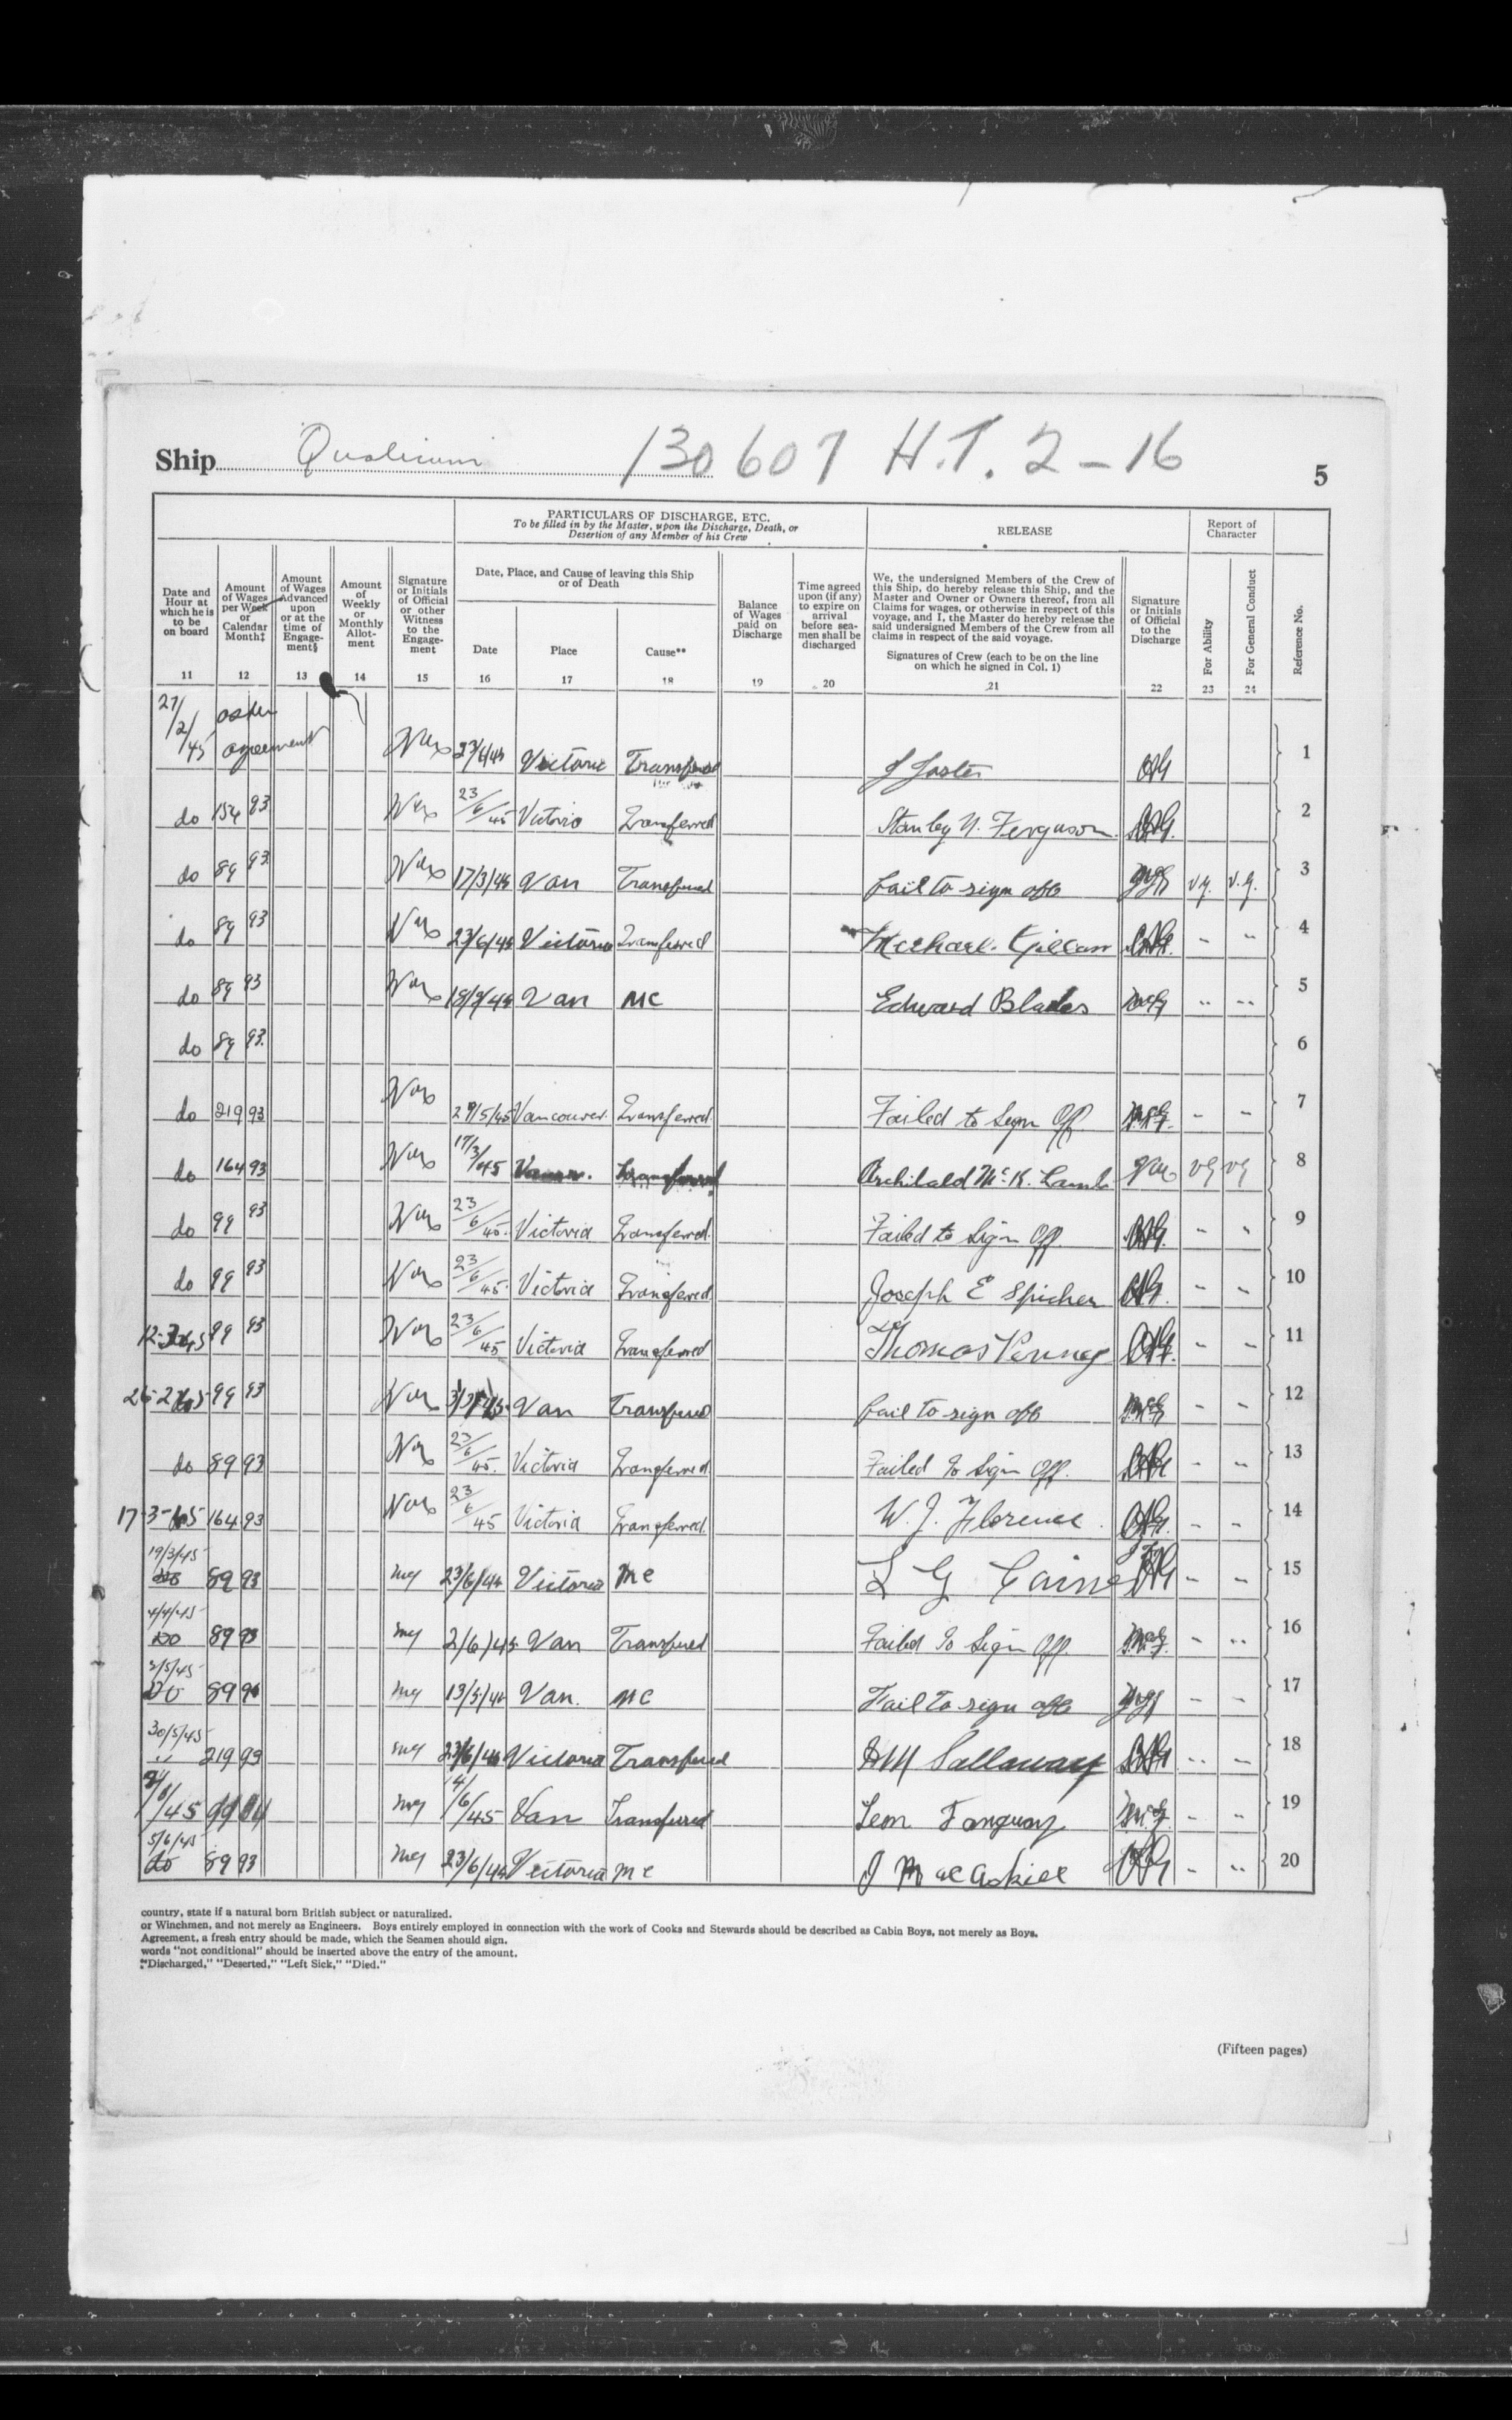 Ship Qualicum 130607 H.T. 2-16 5
PARTICULARS OF DISCHARGE, ETC.
To be filled in by the Master, upon the Discharge, Death, or
Desertion of any Member of his Crew
RELEASE
Report of
Character
Date and
Hour at
which he is
to be
on board
11
Amount
of Wages
per Week
or
Calendar
Month‡
12
Amount
of Wages
Advanced
upon
or at the
time of
Engage-
ment§
13
Amount
of
Weekly
or
Monthly
Allot-
ment
14
Signature
or Initials
of Official
or other
Witness
to the
Engage-
ment
15
Date, Place, and Cause of leaving this Ship
or of Death
Date
16
Place
17
Cause**
18
Balance
of Wages
paid on
Discharge
19
Time agreed
upon (if any)
to expire on
arrival
before sea-
men shall be
discharged
20
We, the undersigned Members of the Crew of
this Ship, do hereby release this Ship, and the
Master and Owner or Owners thereof, from all
Claims for wages, or otherwise in respect of this
voyage, and I, the Master do hereby release the
said undersigned Members of the Crew from all
claims in respect of the said voyage.
Signatures of Crew (each to be on the line
on which he signed in Col. 1)
21
Signature
or Initials
of Official
to the
Discharge
22
For Ability
23
For General Conduct
24
Reference No.
27/2/45 as per agreement 23/6/45 Victoria Transferred J Foster 1
do 154 93 23/6/45 Victoria Transferred Stanley N. Ferguson 2
do 89 93 17/3/45 Van Transferred fail to sign off V.G. V.G. 3
do 89 93 23/6/45 Victoria Transferred Michael 4
do 89 93 Van MC Edward Blades 5
do 89 93 6
do 219 93 29/5/45 Vancouver. Transferred. Failed to Sign Off 7
do 164 93 17/3/45 Transferred Archibald McK. Lamb VG VG 8
do 99 93 23/6/45 Victoria Transferred. Failed to Sign Off. 9
do 99 93 23/6/45 Victoria Transferred Joseph E Spicher 10
99 93 23/6/45 Victoria Transferred Thomas 11
99 93 Van Transferred fail to sign off 12
do 89 93 23/6/45. Victoria Transferred Failed To Sign Off. 13
17-3-45 164 93 23/6/45 Victoria Transferred. W. J. Florence 14
19/3/45 89 93 23/6/45 Victoria MC L G 15
4/4/45 89 93 2/6/45 Van Transferred Failed To Sign Off. 16
2/5/45 do 89 13/5/45 Van. MC Fail to sign off 17
30/5/45 " 219 93 23/6/45 Victoria Transferred Sallaway 18
14/6/45 Van Transferred Leon 19
5/6/45 do 89 93 23/6/45 Victoria MC J MacAskill 20
country, state if a natural born British subject or naturalized.
or Winchmen, and not merely as Engineers. Boys entirely employed in connection with the work of Cooks and Stewards should be described as Cabin Boys, not merely as Boys.
Agreement, a fresh entry should be made, which the Seamen should sign.
words "not conditional" should be inserted above the entry of the amount.
**"Discharged," "Deserted," "Left Sick," "Died."
(Fifteen pages)